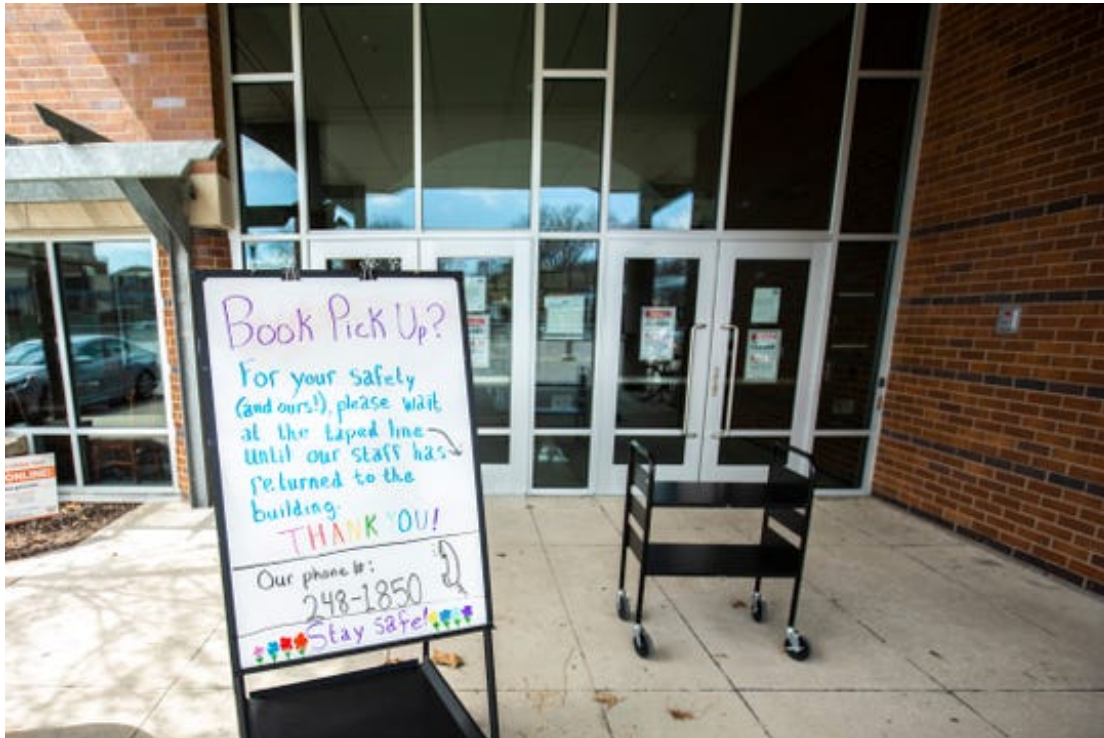 Book Pick Up?
For your safety
(and ours!), please wait
at the taped line
until our staff has
returned to the
building.
THANK YOU!
Our phone #:
248-1850
Stay safe!
ONLINE!